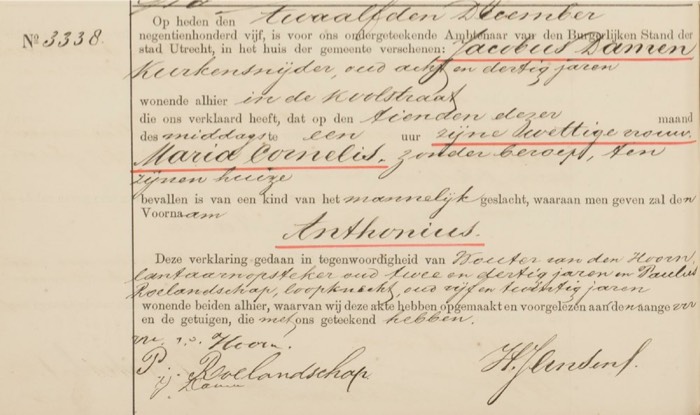 Op heden den twaalfden December
No 3338. negentienhonderd vijf, is voor ons ondergeteekende Ambtenaar van den Burgerlijken Stand der
stad Utrecht, in het huis der gemeente verschenen: Jacobus Damen
Kurkensnijder, oud acht en dertig jaren
wonende alhier in de Koolstraat
die ons verklaard heeft, dat op den tienden dezer maand
des middags te een uur zijne wettige vrouw
Maria Cornelis, zonder beroep, ten
zijnen huize
bevallen is van een kind van het mannelijk geslacht, waaraan men geven zal den
Voornaam
Anthonius.
Deze verklaring gedaan in tegenwoordigheid van Wouter van den Hoorn,
lantaarnopsteker oud twee en dertig jaren en Paulus
Roelandschap, loopknecht, oud vijf en twintig jaren
wonende beiden alhier, waarvan wij deze akte hebben opgemaakt en voorgelezen aan den aangever
en de getuigen, die met ons geteekend hebben.
Hoorn.
P. Roelandschap
H. Jansen